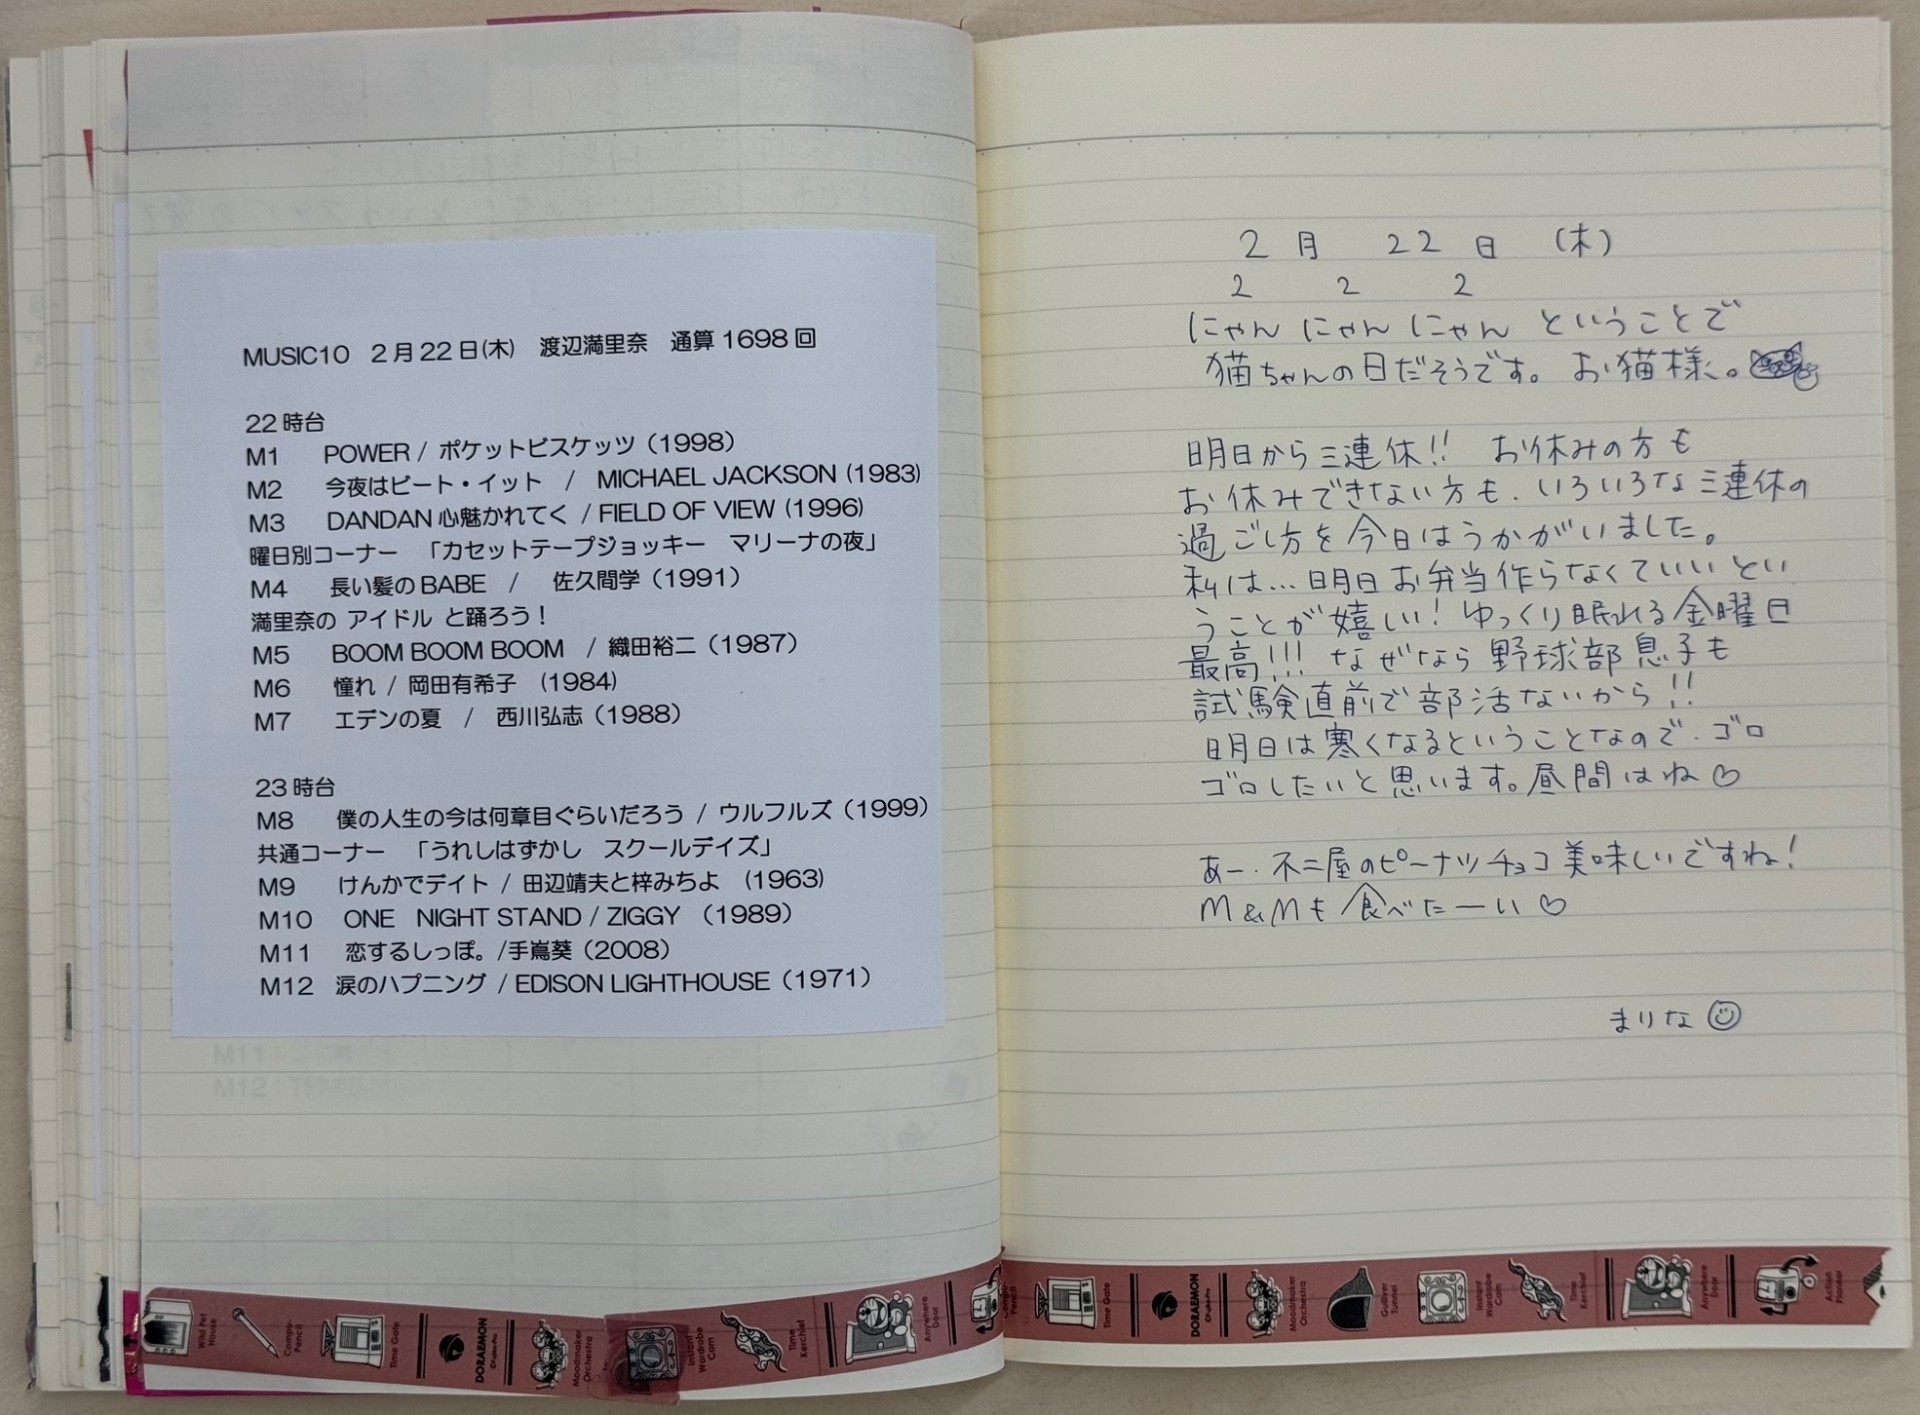 MUSIC10 2月22日(木) 渡辺満里奈 通算1698回
22時台
M1 POWER / ポケットビスケッツ（1998）
M2 今夜はビート・イット / MICHAEL JACKSON (1983)
M3 DANDAN心魅かれてく / FIELD OF VIEW (1996)
曜日別コーナー 「カセットテープジョッキー マリーナの夜」
M4 長い髪のBABE / 佐久間学（1991）
満里奈の アイドル と踊ろう！
M5 BOOM BOOM BOOM / 織田裕二（1987）
M6 憧れ / 岡田有希子 (1984)
M7 エデンの夏 / 西川弘志（1988）
23時台
M8 僕の人生の今は何章目ぐらいだろう / ウルフルズ（1999）
共通コーナー 「うれしはずかし スクールデイズ」
M9 けんかでデイト / 田辺靖夫と梓みちよ (1963)
M10 ONE NIGHT STAND / ZIGGY （1989）
M11 恋するしっぽ。/手嶌葵（2008）
M12 涙のハプニング / EDISON LIGHTHOUSE（1971）
2月 22日 (木)
2 2 2
にゃん にゃん にゃん ということで
猫ちゃんの日だそうです。お猫様。
明日から三連休!! お休みの方も
お休みできない方も、いろいろな三連休の
過ごし方を今日はうかがいました。
私は…明日お弁当作らなくていいとい
うことが嬉しい! ゆっくり眠れる金曜日
最高!!! なぜなら野球部息子も
試験直前で部活ないから!!
明日は寒くなるということなので、ゴロ
ゴロしたいと思います。昼間はね♡
あー、不二屋のピーナツチョコ美味しいですね!
M&Mも食べたーい♡
まりな
Wild Pet House
Compu-Pencil
Time Gate
DORAEMON
Moodmaker Orchestra
Instant Wardrobe Cam
Time Kerchief
Anywhere Door
Compu-Pencil
Time Gate
DORAEMON
Moodmaker Orchestra
Gulliver Tunnel
Instant Wardrobe Cam
Time Kerchief
Anywhere Door
Action Planner